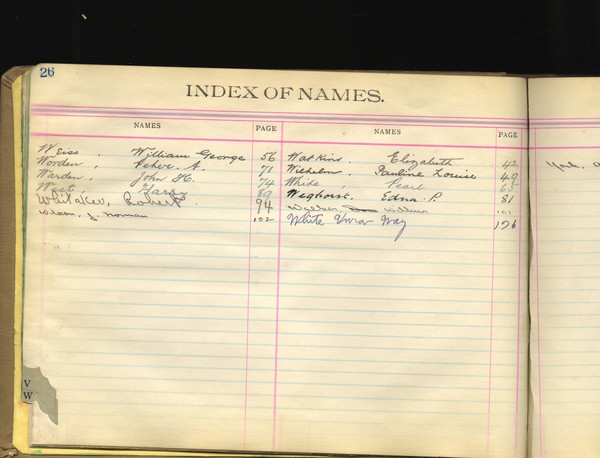 26
INDEX OF NAMES.
NAMES PAGE NAMES PAGE
Weiss, William George 56 Watkins, Elizabeth 42
Worden, Peter A. 71 Wilhelm, Pauline Louise 49
Warden, John H. 74 White, Pearl
West, Harry 89 Weghorst, Edna P. 81
Whitaker, Robert 94 William 101
Wilson, J. Norman 102 White May 126
V
W